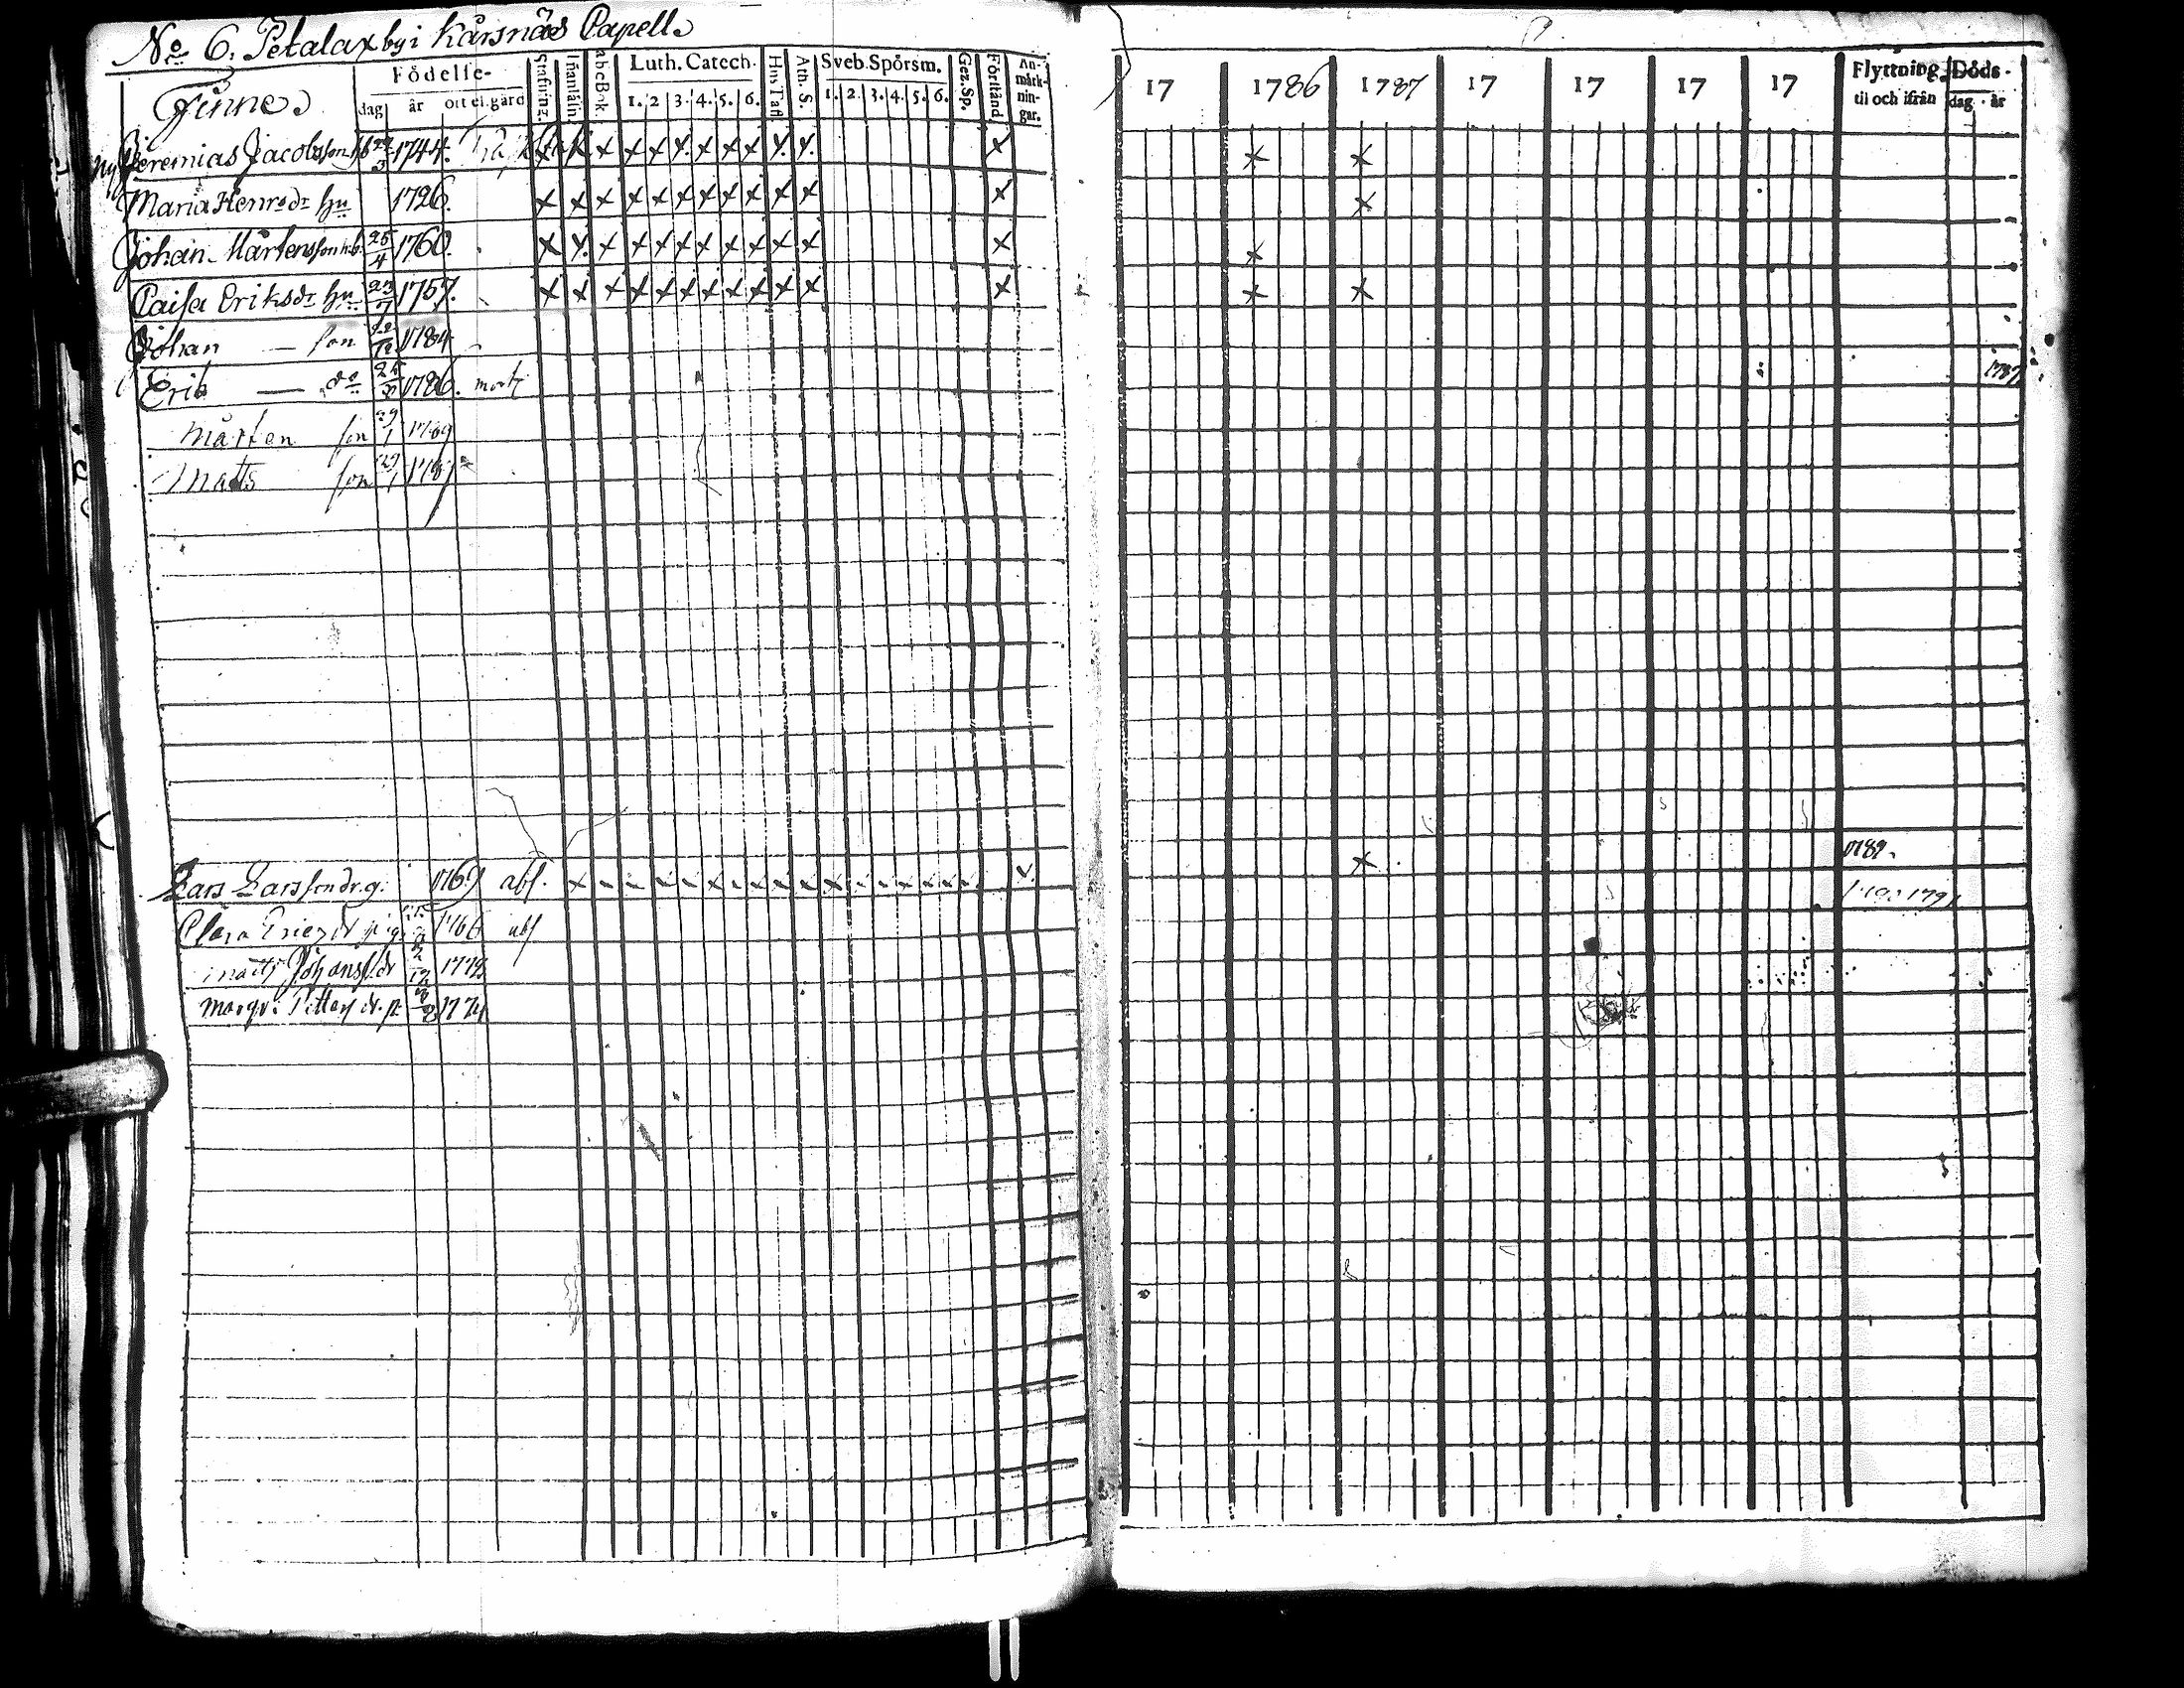 No 6. Petalax by i Kårsnäs Capell.
Finne
Födelse-
dag år ort el. gård
Stafning.
Inanläsn
abcBok.
Luth. Catech.
1. 2 3. 4. 5. 6.
Hus Tafl
Ath. S.
Sveb. Spörsm.
1. 2. 3. 4. 5. 6.
Gez. Sp.
Förstånd
An-
märk-
nin-
gar.
17 1786 1787 17 17 17 17
Flyttning
til och ifrån
Döds-
dag år
Jeremias Jacobsson 1744. x x x x x x x x x x x x
Maria Henrsdr hu 1726. x x x x x x x x x x x x x
Johan Mårtensson 25/4 1760. x x x x x x x x x x x x x
Caisa Eriksdr hu 23 1757. x x x x x x x x x x x x x x
Johan — son 1784
Erik — do 1786. mort 1787
Mårten son 29/1 1789
Matts son 29/1 1789
Lars Larsson dr.g. 1769 abs. x 1789.
Clara 1766 abs 1791
matts Johanss dr 2/12 1772
Margr. Pitters dr. p. 8 1774